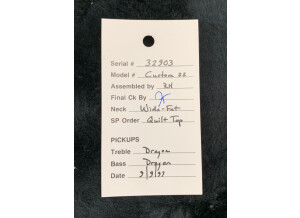 Serial # 32903
Model # Custom 22
Assembled by
Final Ck By
Neck Wide-Fat
SP Order Quilt Top
PICKUPS
Treble Dragon
Bass Dragon
Date 9/9/97